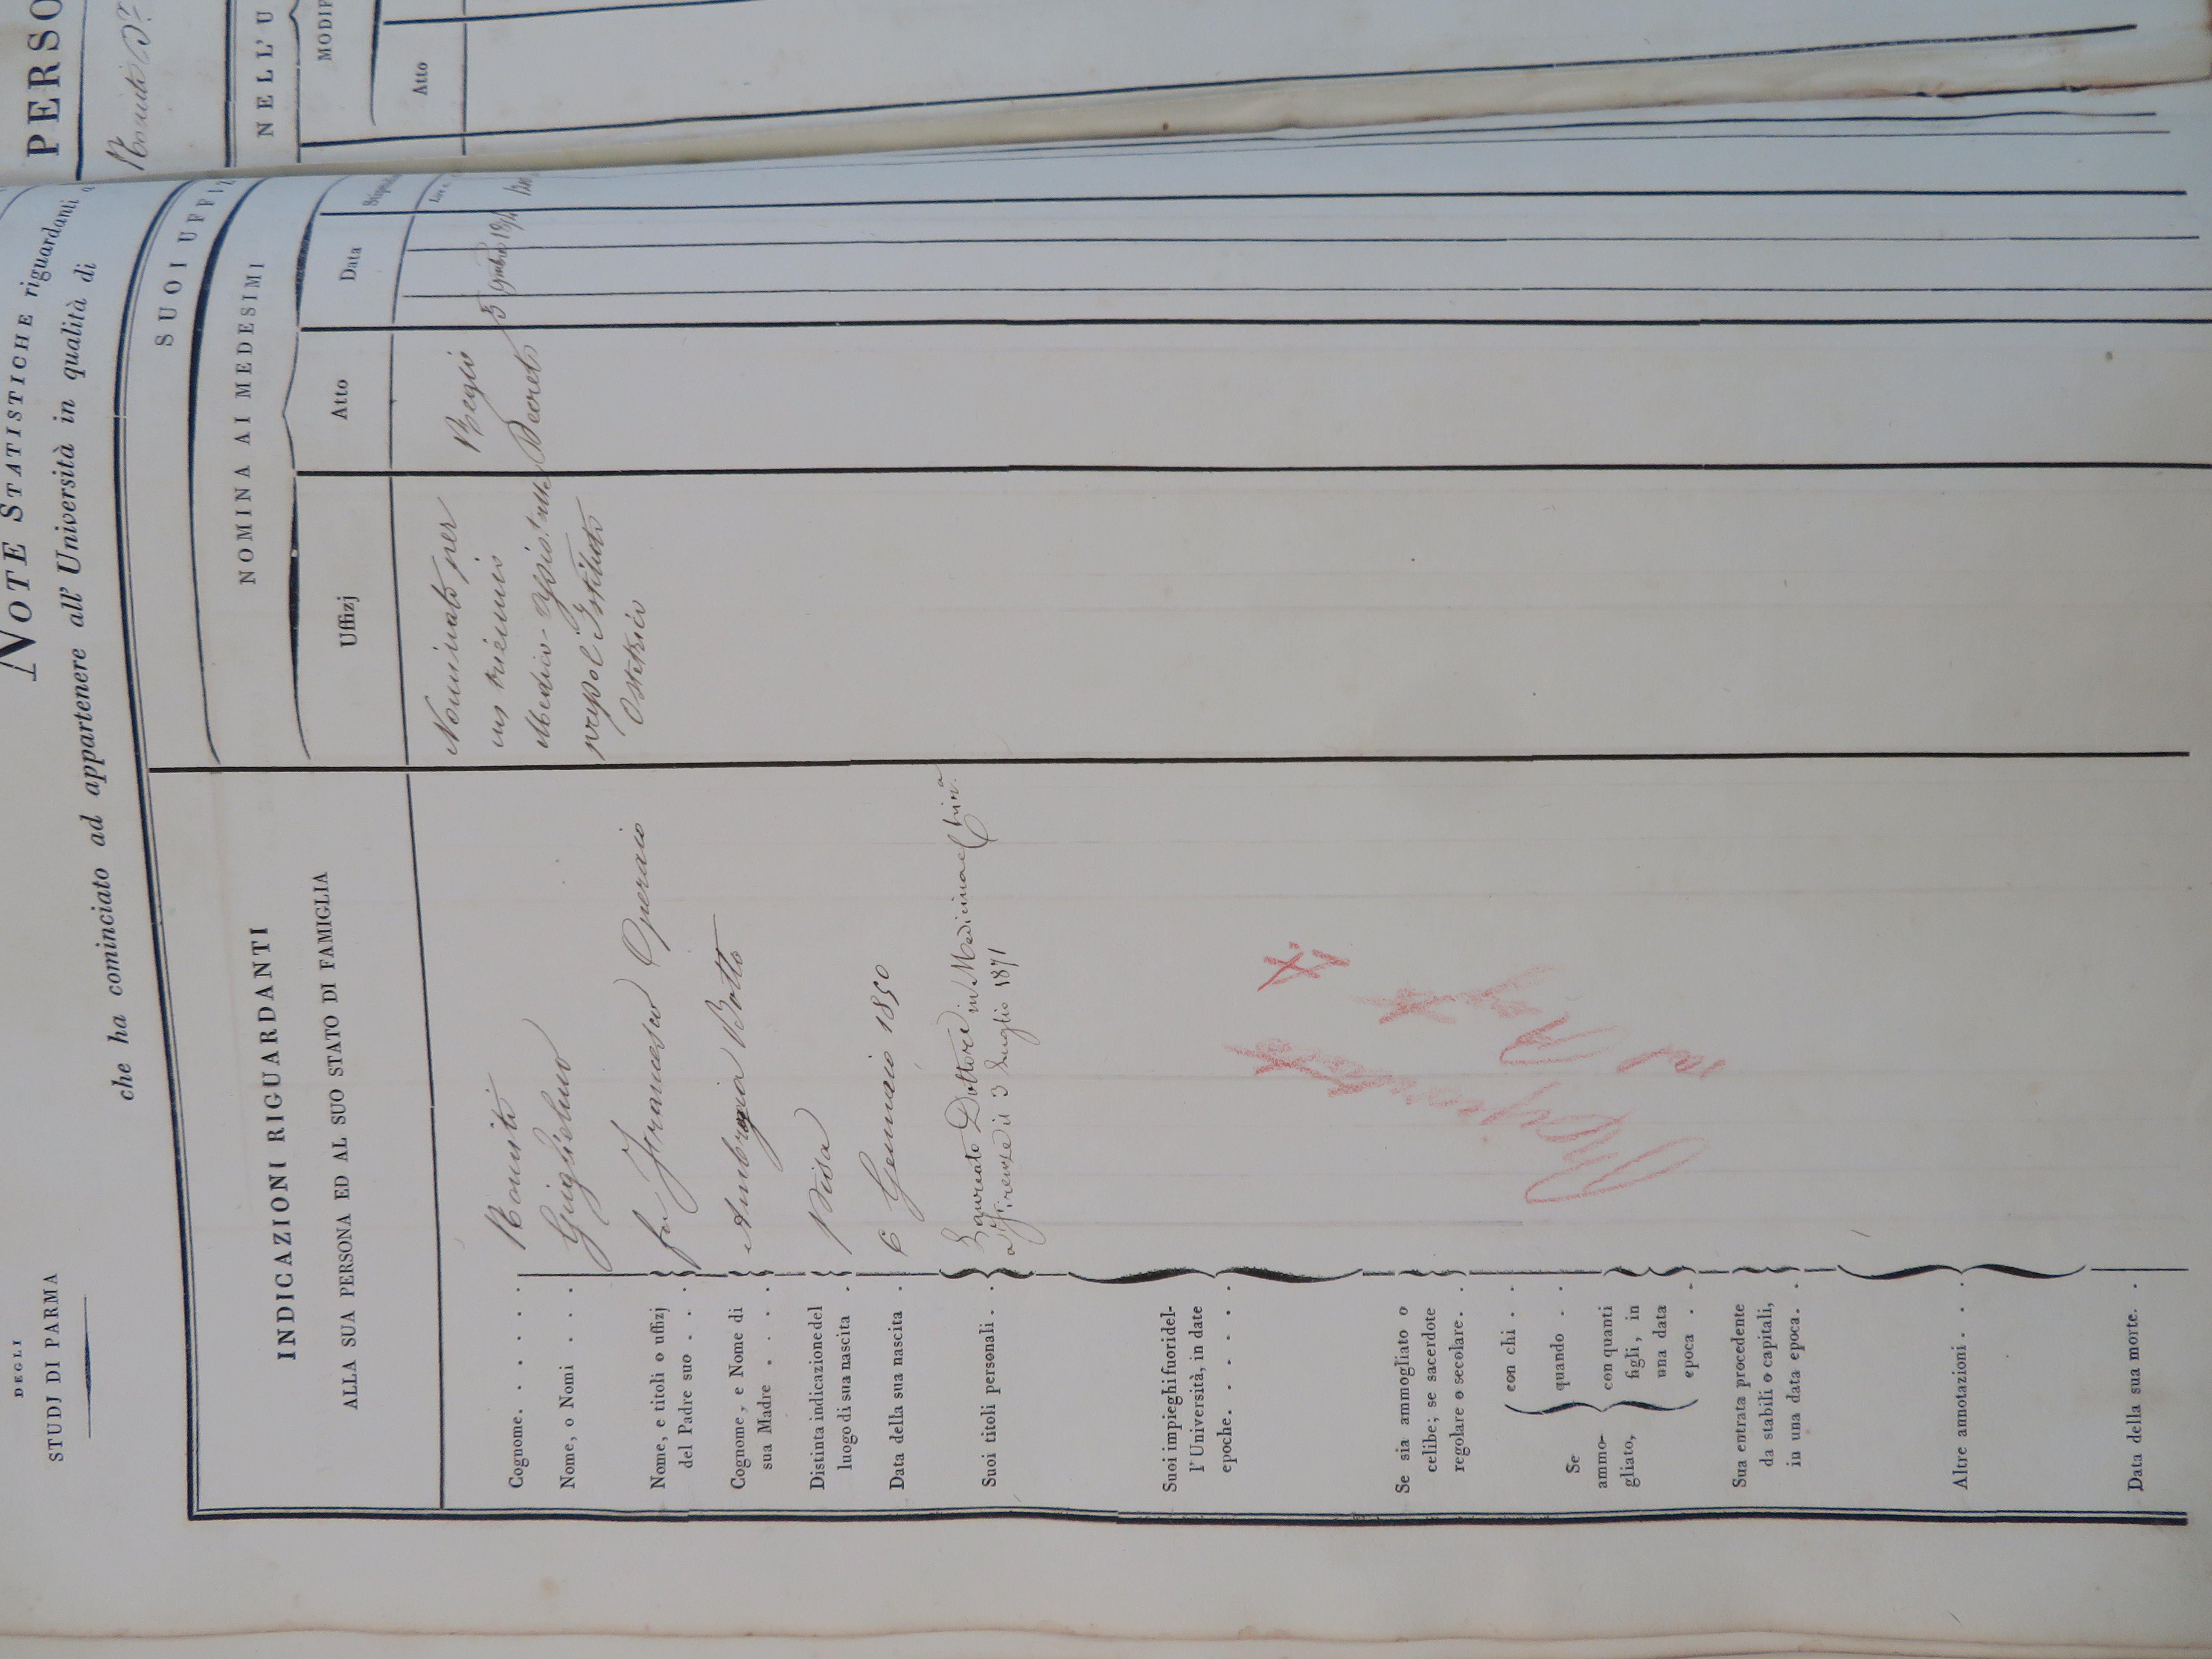 DEGLI
STUDJ DI PARMA
NOTE STATISTICHE riguardanti
che ha cominciato ad appartenere all' Università in qualità di
INDICAZIONI RIGUARDANTI
ALLA SUA PERSONA ED AL SUO STATO DI FAMIGLIA
SUOI UFFIZ
NOMINA AI MEDESIMI
Uffizj
Atto
Data
Cognome. . . . . . Romiti
Nome, o Nomi . . . . Guglielmo
Nome, e titoli o uffizj
del Padre suo . . . fu Francesco Operaio
Cognome, e Nome di
sua Madre . . . . Ambrogia Botto
Distinta indicazione del
luogo di sua nascita . Pisa
Data della sua nascita . 6 Gennaio 1850
Suoi titoli personali . . Laureato Dottore in Medicina e Chira
a Firenze il 3 Luglio 1871
Suoi impieghi fuori del-
l' Università, in date
epoche. . . . . . .
Se sia ammogliato o
celibe; se sacerdote
regolare o secolare. .
Se
ammo-
gliato,
con chi . .
quando . .
con quanti
figli, in
una data
epoca . .
Sua entrata procedente
da stabili o capitali,
in una data epoca. .
Altre annotazioni. . . .
Data della sua morte. .
Nominato per
un triennio
Medico-
Istituto
Ostetrico
Regio
Decreto
5
PERSO
Romiti D.r
NELL' U
MODIF
Atto